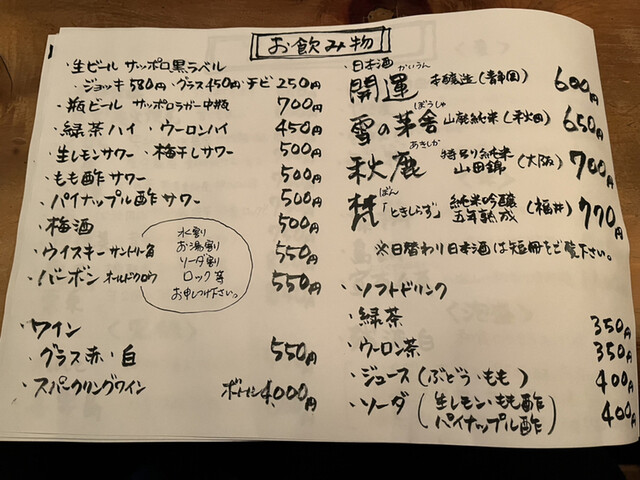 お飲み物
・生ビール サッポロ黒ラベル
ジョッキ580円・グラス450円・チビ250円
・瓶ビール サッポロラガー中瓶 700円
・緑茶ハイ ・ウーロンハイ 450円
・生レモンサワー ・梅干しサワー 500円
・もも酢サワー 500円
・パイナップル酢サワー 500円
・梅酒 500円
・ウイスキー サントリー角 550円
・バーボン オールドクロウ 550円
水割り
お湯割り
ソーダ割り
ロック等
お申しつけ下さい。
・ワイン
・グラス赤・白 550円
・スパークリングワイン ボトル4,000円
・日本酒
かいうん
開運 本醸造(静岡) 600円
ぼうしゃ
雪の茅舎 山廃純米(秋田) 650円
あきしか
秋鹿 特吊り純米 山田錦 (大阪) 700円
ぼん
梵「ときしらず」 純米吟醸 五年熟成 (福井) 770円
※日替わり日本酒は短冊をご覧下さい。
・ソフトドリンク
・緑茶 350円
・ウーロン茶 350円
・ジュース(ぶどう・もも) 400円
・ソーダ(生レモン・もも酢 パイナップル酢) 400円